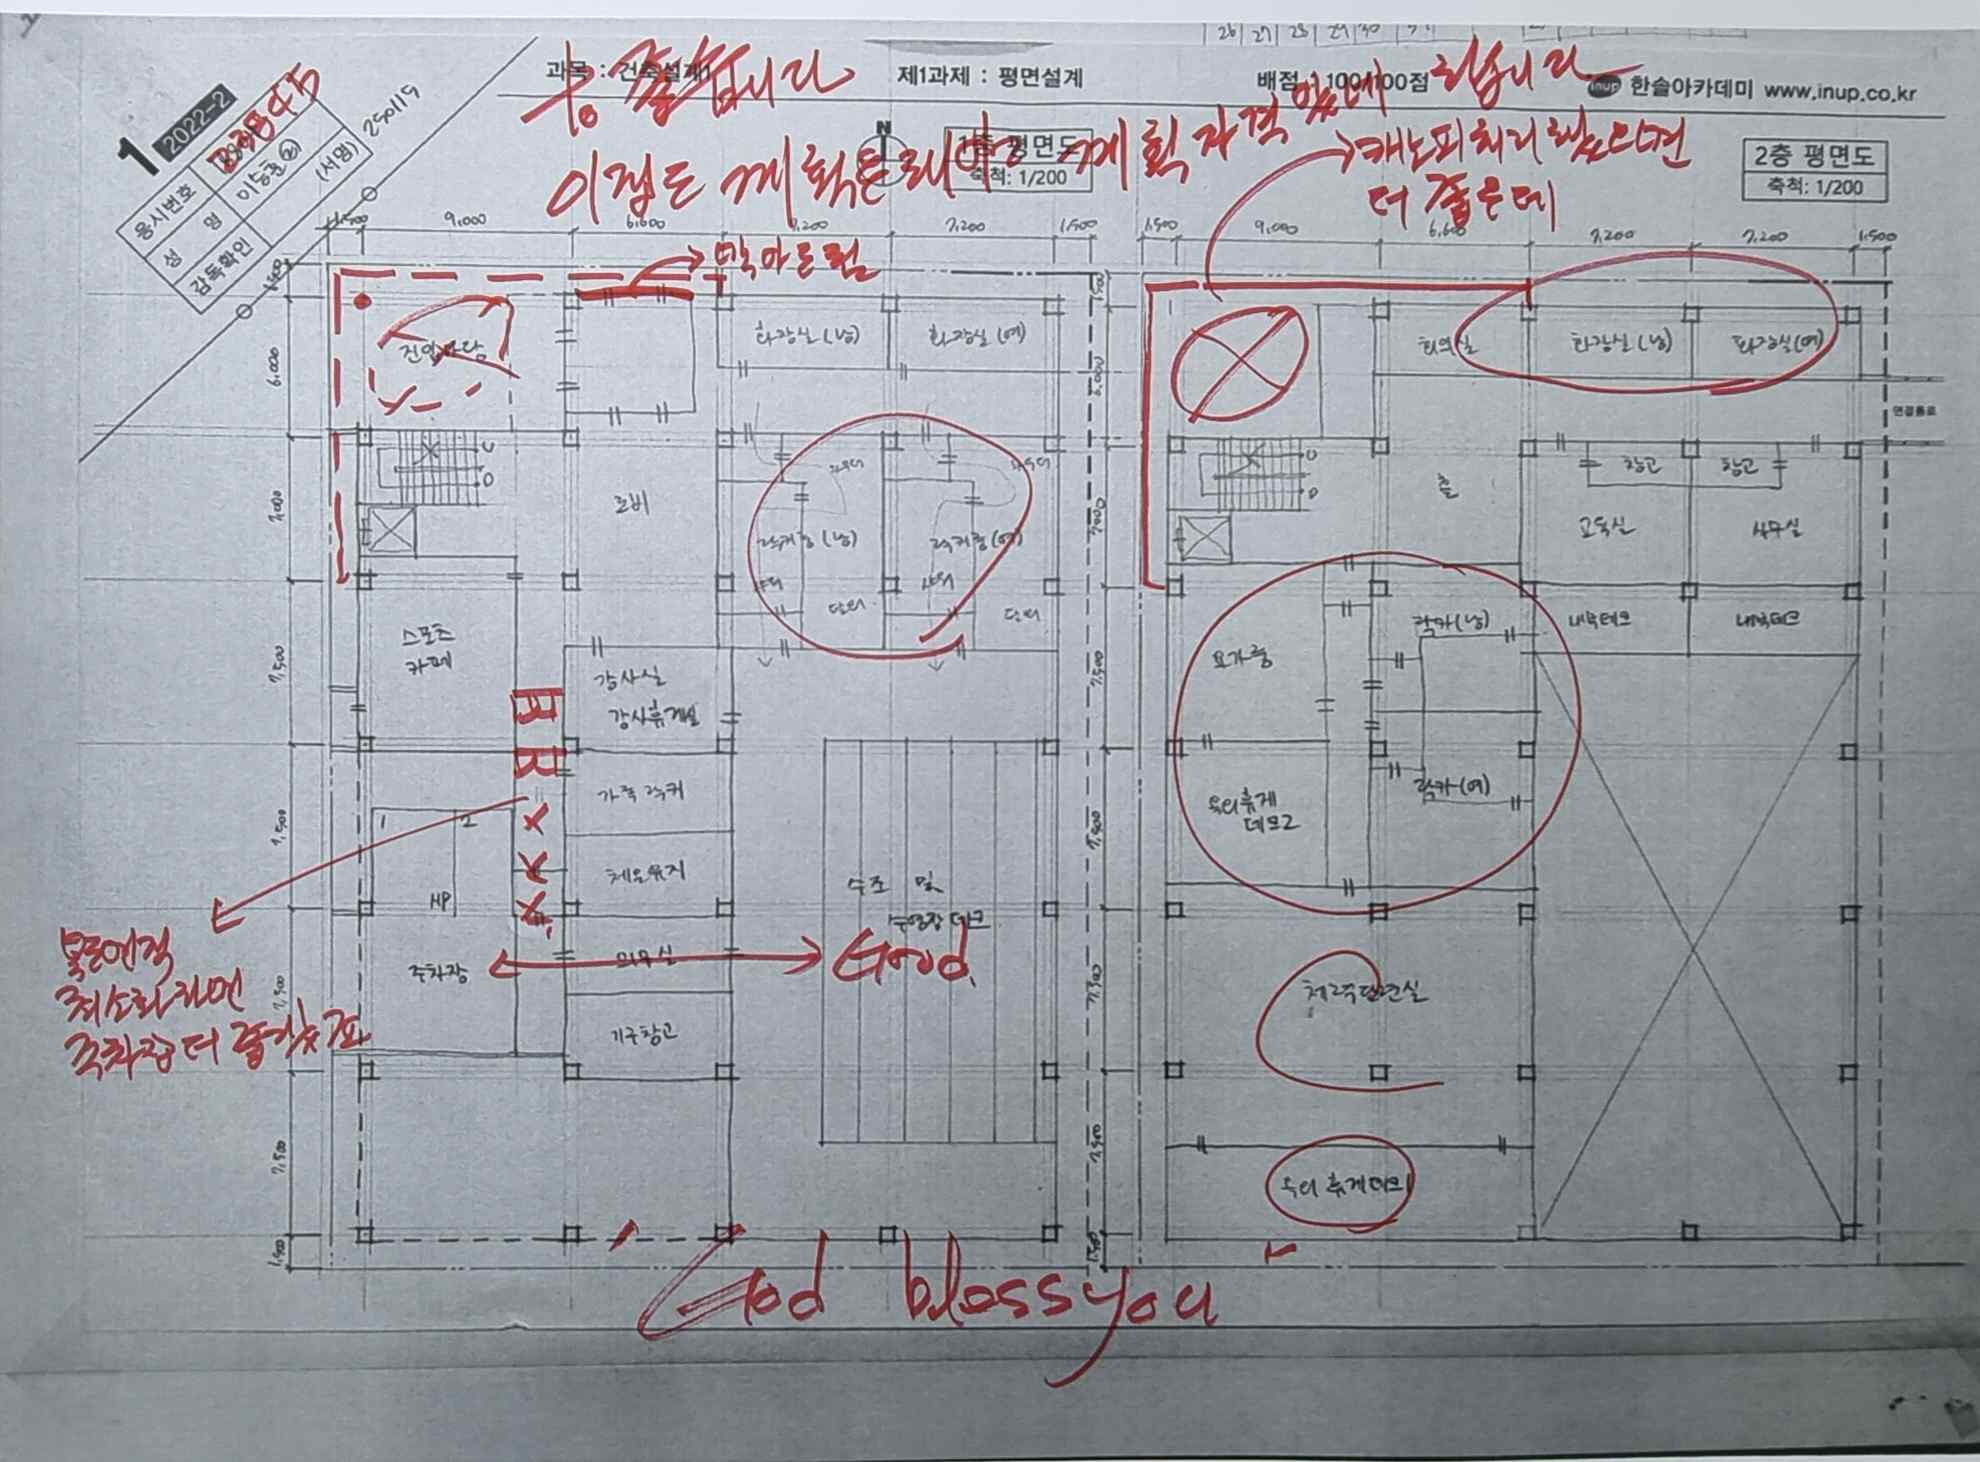 과목 : 건축설계1
제1과제 : 평면설계
배점 : 100/100점
inup 한솔아카데미 www.inup.co.kr
1 2022-2
응시번호
성 명
감독확인
(서명)
250119
N
1층 평면도
축척: 1/200
2층 평면도
축척: 1/200
좋습니다
이정도 계획은
계획 자격 있
합니다
캐노피처리 했으면
더 좋은데
1,500 9,000 6,600 7,200 7,200 1,500
1,500 9,000 6,600 7,200 7,200 1,500
막아도 됨
진입마당
화장실(남)
화장실(여)
회의실
화장실(남)
화장실(여)
연결통로
6,000
6,000
U
D
로비
샤워
샤워
락커룸(남)
락커룸(여)
탈의
탈의
U
D
홀
창고
창고
교육실
사무실
7,500
7,500
스포츠
카페
강사실
강사휴게실
요가룸
락카(남)
내부데크
내부데크
7,500
가족락커
1
2
체온유지
HP
옥외휴게
데크2
락카(여)
수조 및
수영장데크
7,500
주차장
의무실
Good
체력단련실
기구창고
복도면적
최소화하면
7,500
옥외휴게데크1
1,500
God bless you